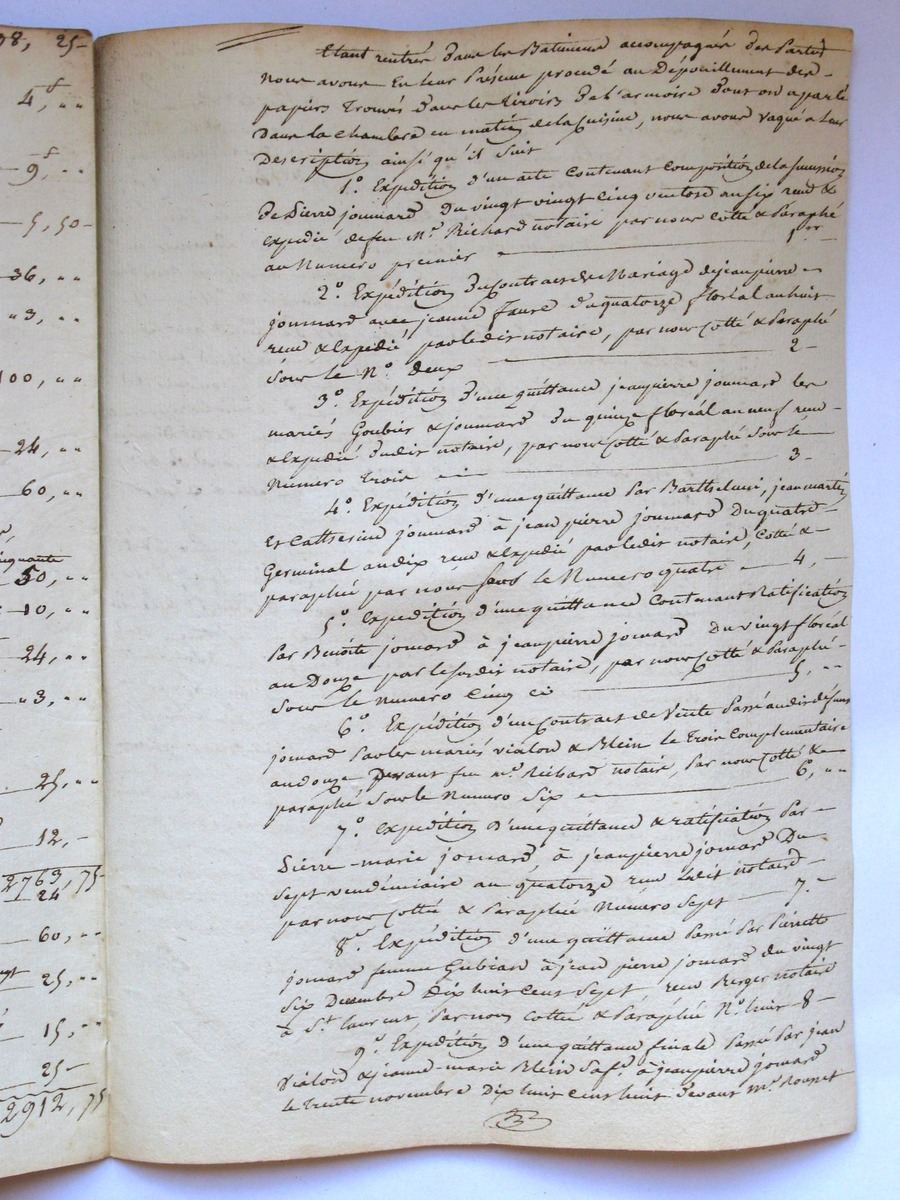 98, 25-
4,f ..
9f ..
5, 50-
36, ..
3, ..
100, ..
24, ..
60, ..
50, ..
10, ..
24, ..
3, ..
25, ..
12, -
2763, 75-
24
60, ..
25, ..
15, ..
25-
2912, 75
Etant rentrés dans les Batiments accompagnés des Parties
nous avons En leur Présence procédé au Dépouillement des
papiers Trouvés dans les tiroirs de l'armoire dont on a parlé
dans la chambre en matin de la Cuisine, nous avons vaqué a leur
Description ainsi qu'il suit
1.º Expédition d'un acte Contenant Composition de la succession
de Pierre joumard du vingt vingt cinq ventose an six reçu &
Expedié de feu Mr. Richard notaire par nous Cotté & Paraphé
au Numero premier 1er
2.º Expédition du contract de Mariage de jeanpierre
joumard avec jeanne faure du quatorze floréal an huit
reçu & Expedié par ledit notaire, par nous Cotté & Paraphé
sous le Nº. deux 2-
3.º Expédition d'une quittance jeanpierre joumard les
mariés Goubier & joumard du quinze floréal an neuf reçu
& Expedié dudit notaire, par nous Cotté & Paraphé sous le
Numero trois 3-
4.º Expédition d'une quittance Par Barthelemi, jean martin
Et Catherine joumard à jean pierre joumard du quatre
Germinal an dix reçu & Expedié par ledit notaire, Cotté &
paraphé par nous sous le Numero quatre 4, -
5.º Expedition d'une quittance Contenant Ratification
Par Benoite jomard à jeanpierre jomard du vingt floréal
an Douze par le susdit notaire, par nous Cotté & Paraphé
sous le Numero Cinq ci 5, ..
6.º Expédition d'un Contract de Vente Passé audit défunt
jomard Par les mariés vialon & Blein le trois Complementaire
an douze devant feu mr. Richard notaire, Par nous Cotté &
paraphé sous le Numero Six 6, ..
7.º Expédition d'une quittance & ratification Par
Pierre-marie jomard, à jeanpierre jomard Du
Sept vendémiaire an quatorze reçu ledit notaire
par nous Cotté & Paraphé Numéro Sept 7.-
8.º Expédition d'une quittance Passé Par Pierrette
jomard femme Gubian à jean pierre jomard du vingt
Six Decembre Dix huit cent Sept reçu Berger notaire
à St. laurent, Par nous Cotté & Paraphé Nº. huit 8-
9.º Expédition d'une quittance finale Passé Par jean
vialon & jeanne-marie Blein Sa fe. à jeanpierre jomard
le trente novembre Dix huit cent huit devant Mr. Rousset